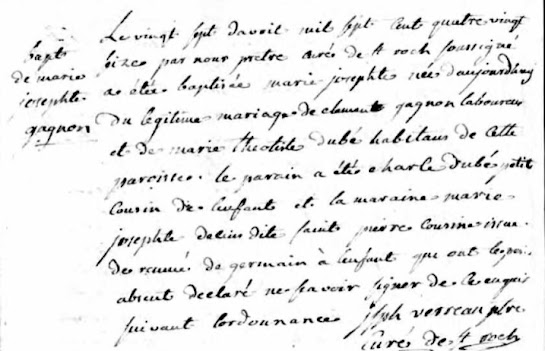 bapt
de marie
josephte
gagnon
Le vingt sept davril mil sept cent quatre vingt
par nous prêtre curé de St roch soussigné
a été baptisée marie josephte née d'aujourdhuy
du légitime mariage de clement gagnon laboureur
et de marie theotiste dubé habitans de cette
paroisse. le parain a été charle dubé petit
cousin de lenfant et la maraine marie
josephte delius dite saint pierre cousine issue
de germain à lenfant qui ont
declaré ne scavoir signer de ce enquis
suivant lordonnance jsph verreau ptre
Curé de St roch